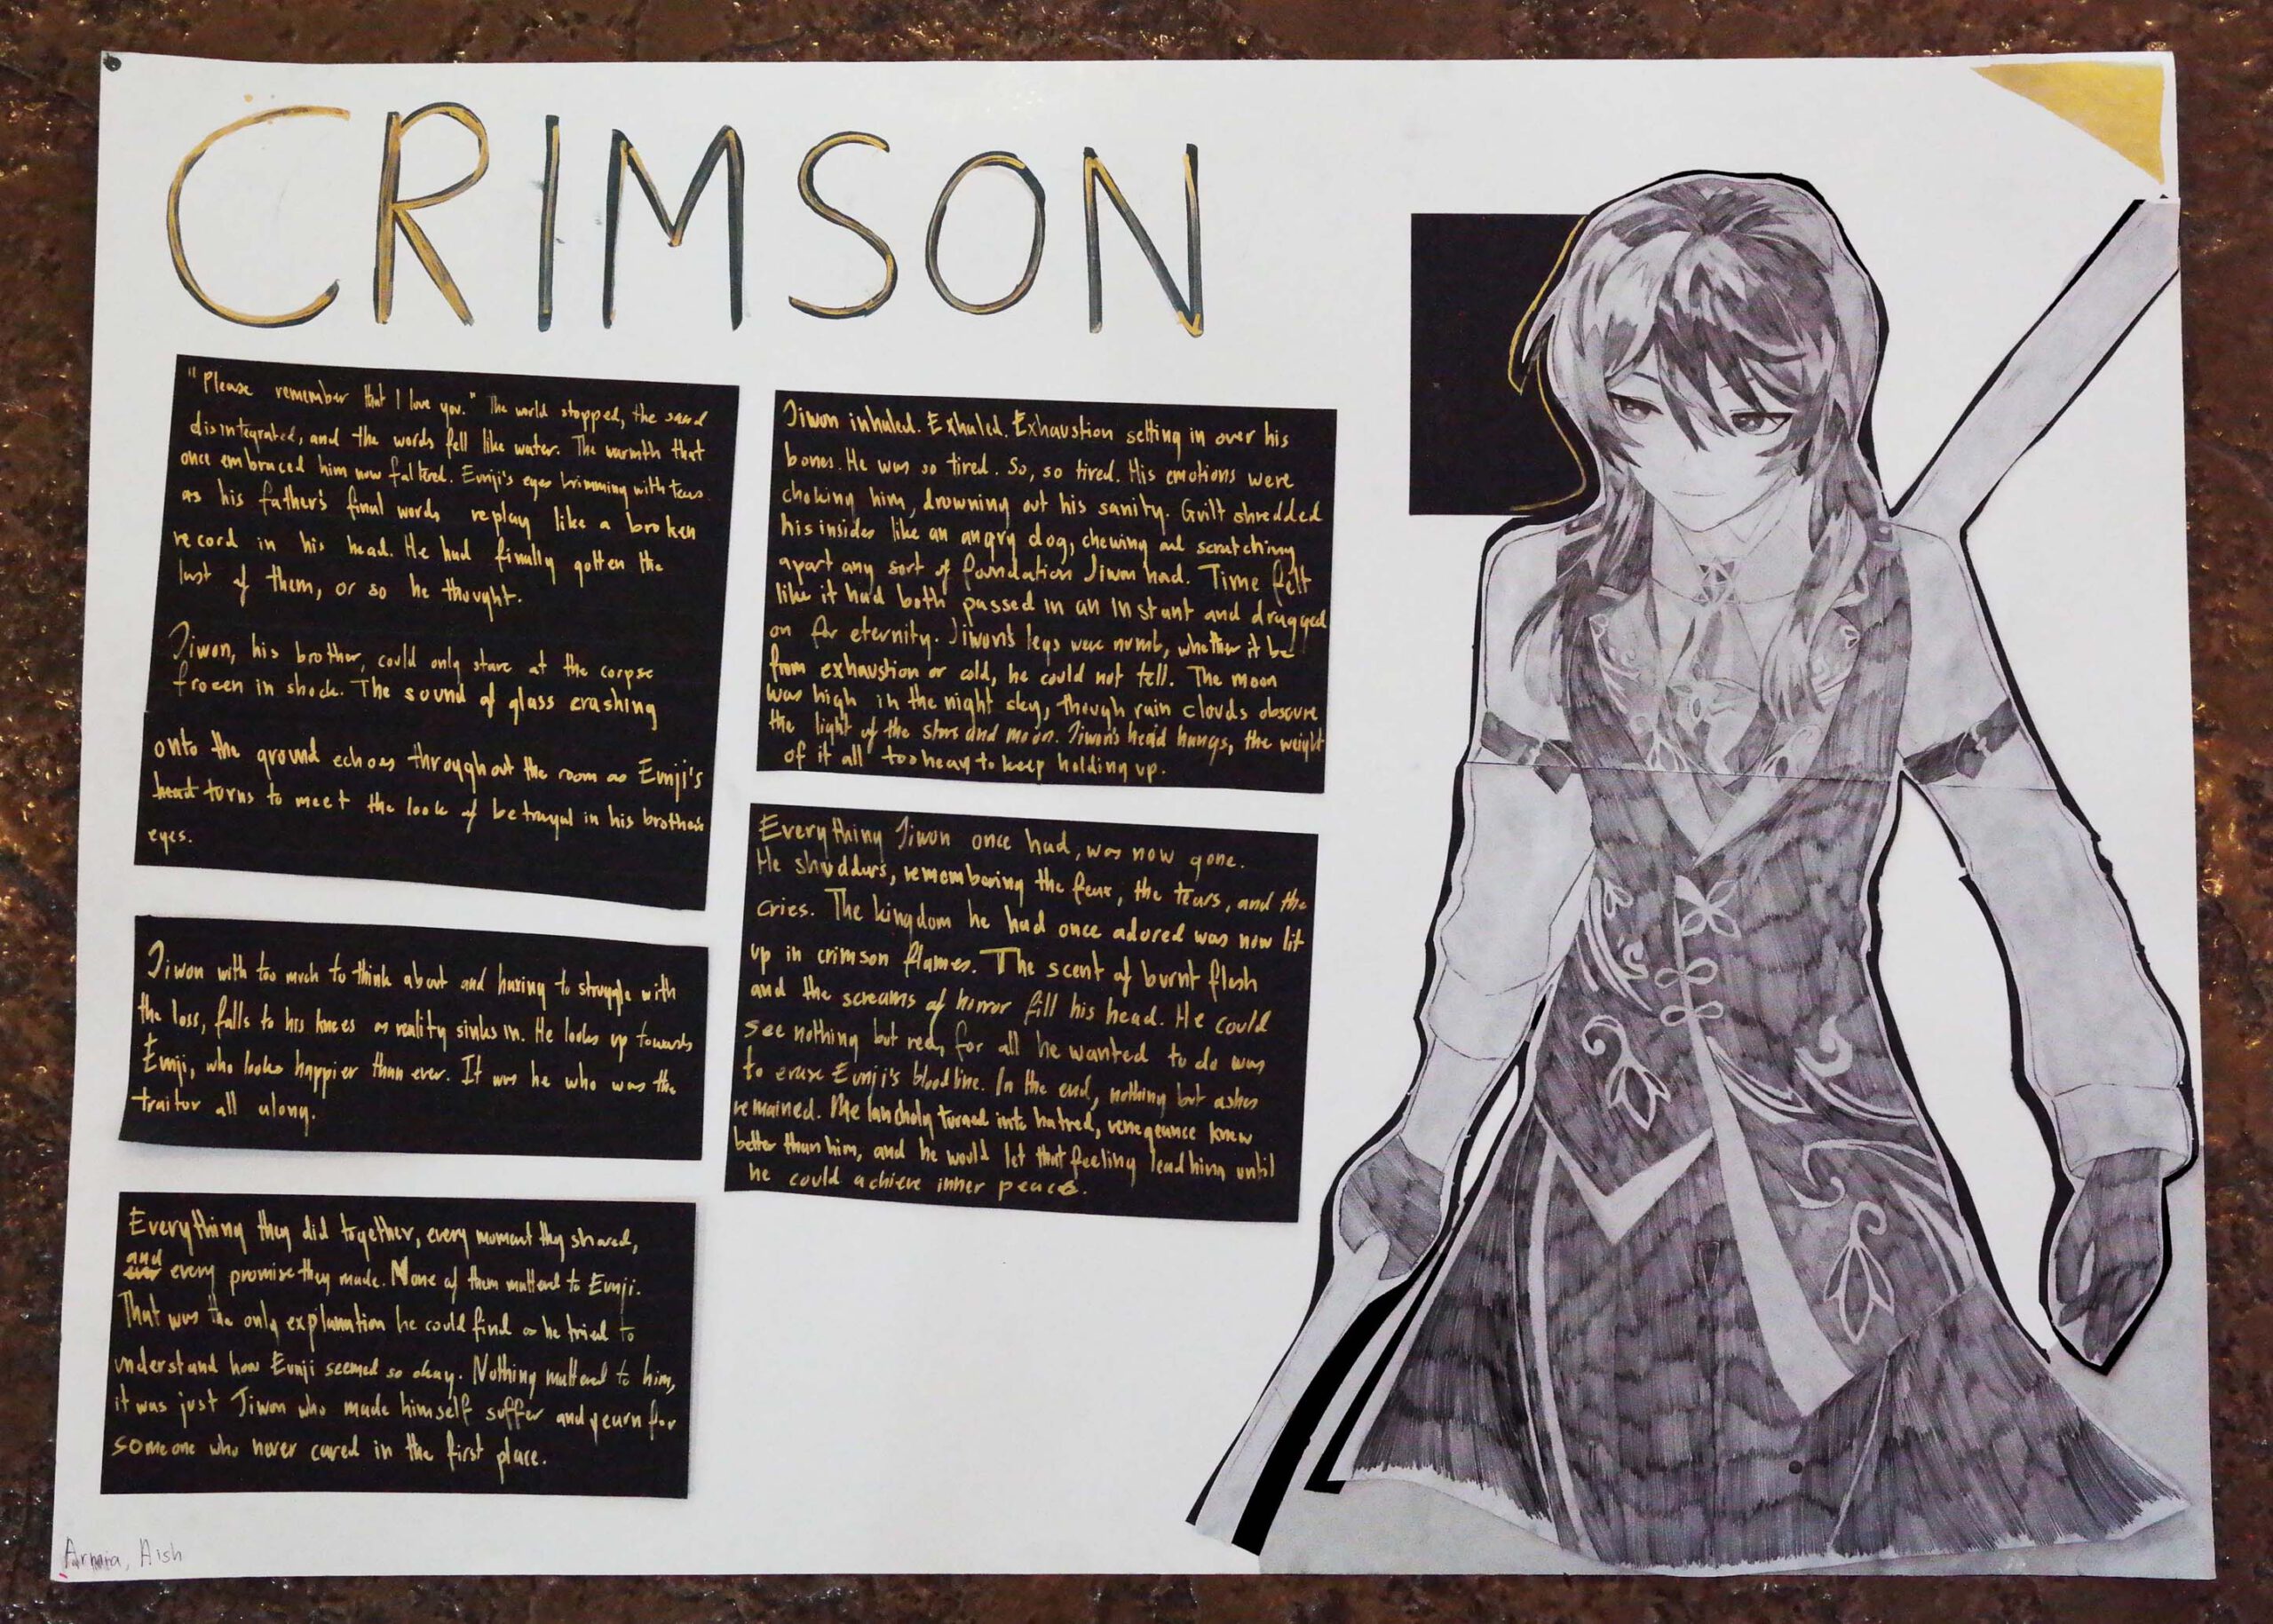 CRIMSON
"Please remember that I love you." The world stopped, the sand
disintegrated, and the words fell like water. The warmth that
once embraced him now faltered. Eunji's eyes brimming with tears
as his father's final words replay like a broken
record in his head. He had finally gotten the
last of them, or so he thought.
Jiwon, his brother, could only stare at the corpse
frozen in shock. The sound of glass crashing
onto the ground echoes throughout the room as Eunji's
head turns to meet the look of betrayal in his brother's
eyes.
Jiwon with too much to think about and having to struggle with
the loss, falls to his knees as reality sinks in. He looks up towards
Eunji, who looks happier than ever. It was he who was the
traitor all along.
Everything they did together, every moment they shared,
and every promise they made. None of them mattered to Eunji.
That was the only explanation he could find as he tried to
understand how Eunji seemed so okay. Nothing mattered to him,
it was just Jiwon who made himself suffer and yearn for
someone who never cared in the first place.
Jiwon inhaled. Exhaled. Exhaustion setting in over his
bones. He was so tired. So, so tired. His emotions were
choking him, drowning out his sanity. Guilt shredded
his insides like an angry dog, chewing and scratching
apart any sort of foundation Jiwon had. Time felt
like it had both passed in an instant and dragged
on for eternity. Jiwon's legs were numb, whether it be
from exhaustion or cold, he could not tell. The moon
was high in the night sky, though rain clouds obscure
the light of the stars and moon. Jiwon's head hangs, the weight
of it all too heavy to keep holding up.
Everything Jiwon once had, was now gone.
He shudders, remembering the fear, the tears, and the
cries. The kingdom he had once adored was now lit
up in crimson flames. The scent of burnt flesh
and the screams of horror fill his head. He could
see nothing but red, for all he wanted to do was
to erase Eunji's bloodline. In the end, nothing but ashes
remained. Melancholy turned into hatred, venegeance knew
better than him, and he would let that feeling lead him until
he could achieve inner peace.
Aish